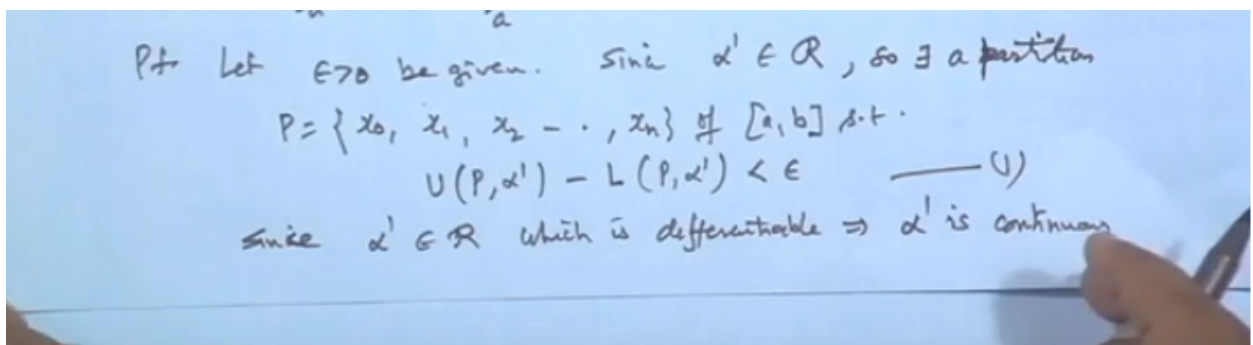 a
Pf. Let ϵ>0 be given. Since α' ∈ R, so ∃ a partition
P = { x₀, x₁, x₂ - · · , xₙ} of [a, b] s.t.
U(P, α') - L(P, α') < ϵ —— (1)
Since α' ∈ R which is differentiable ⇒ α' is continuous